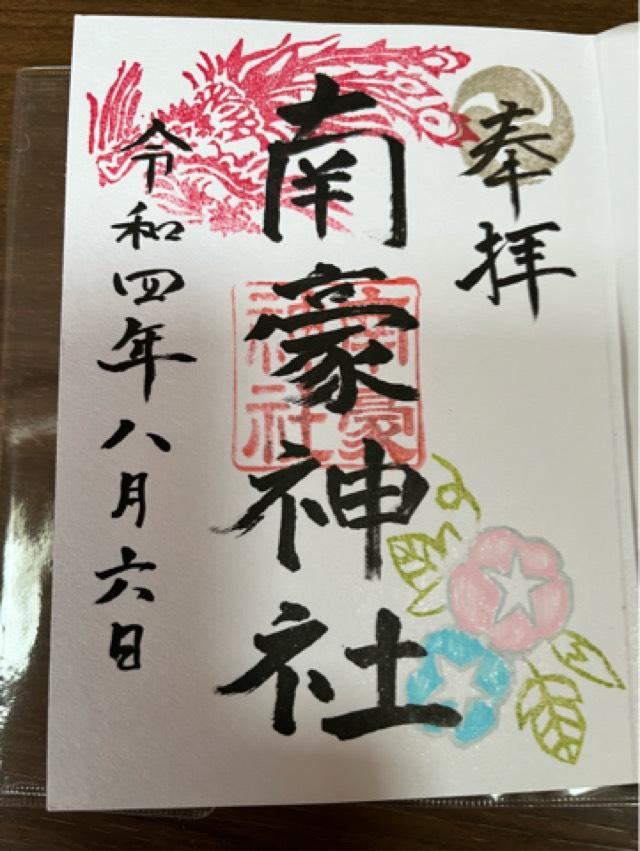 奉拝
南豪神社
南豪
神社
令和四年八月六日